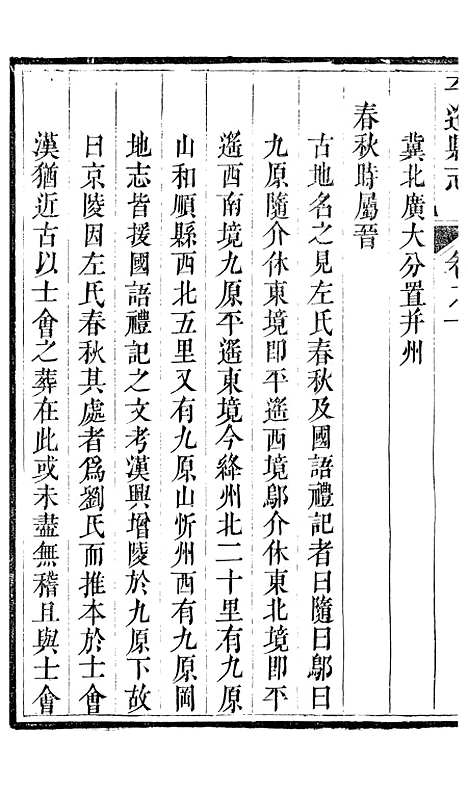 平遙縣志
卷之一
冀北廣大分置并州
春秋時屬晉
古地名之見左氏春秋及國語禮記者曰隨曰鄔曰
九原隨介休東境即平遙西境鄔介休東北境即平
遙西南境九原平遙東境今絳州北二十里有九原
山和順縣西北五里又有九原山忻州西有九原岡
地志皆援國語禮記之文考漢興增陵於九原下故
曰京陵因左氏春秋其處者爲劉氏而推本於士會
漢猶近古以士會之葬在此或未盡無稽且與士會